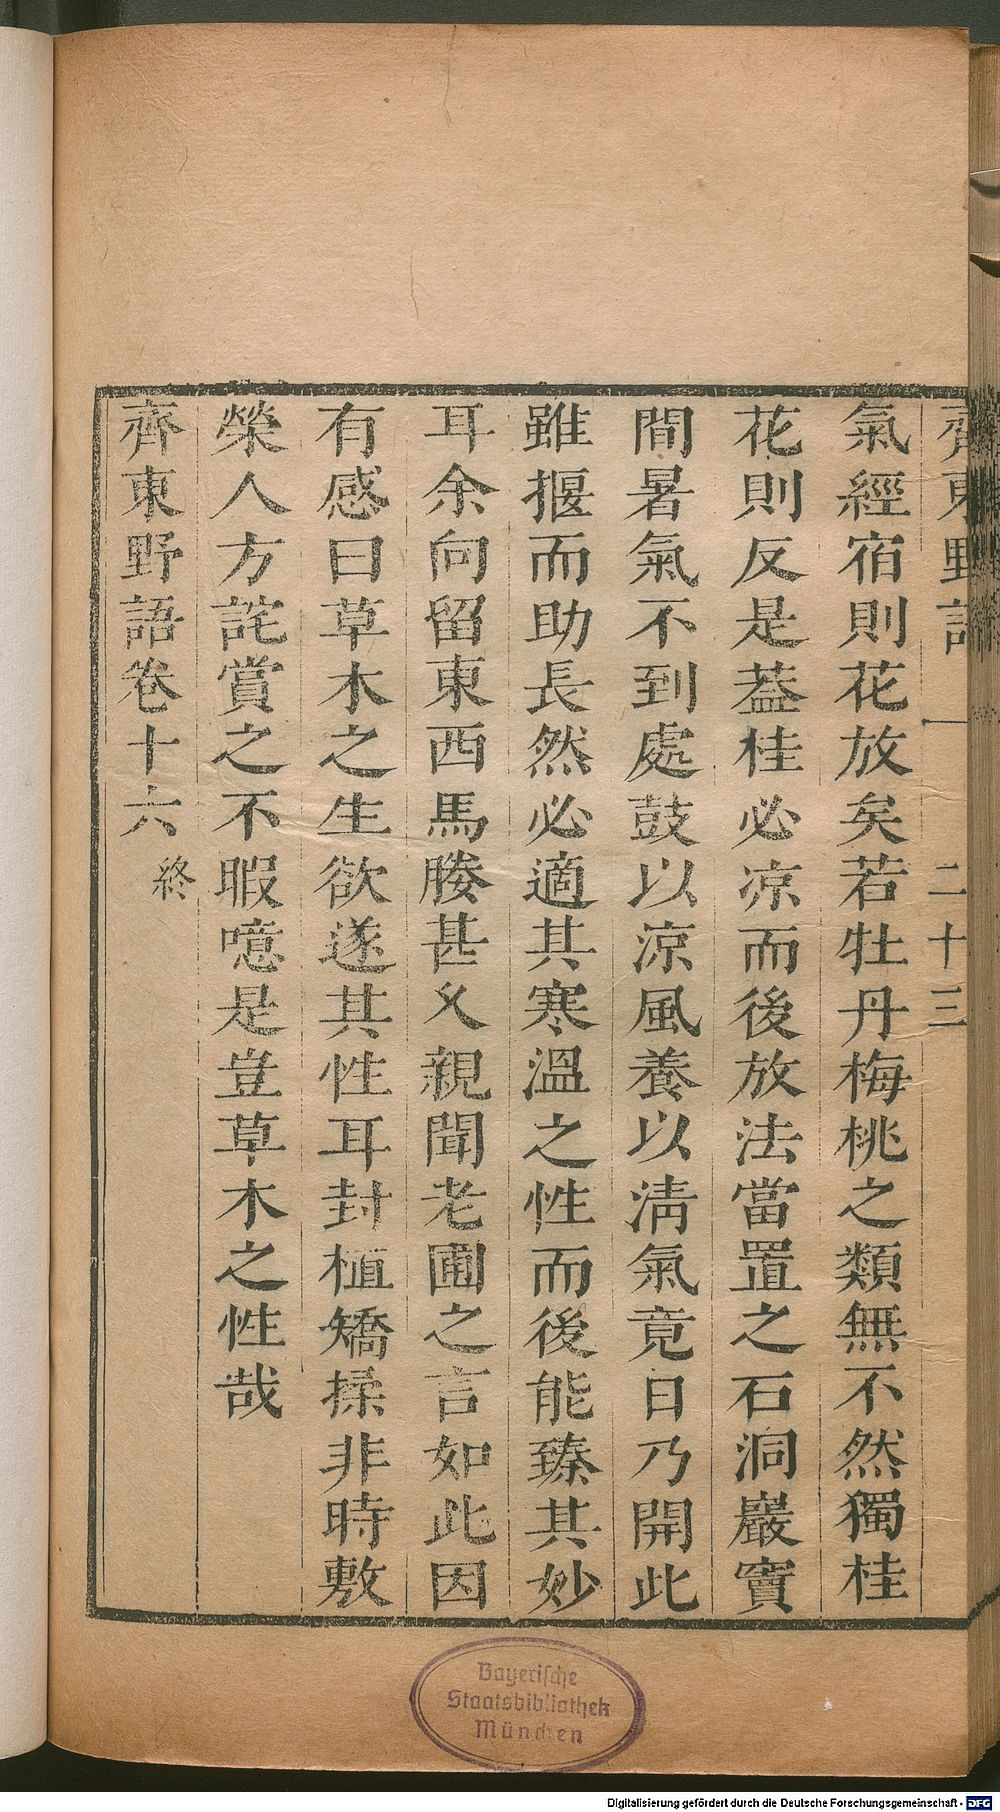 齊東野語 二十三
氣經宿則花放矣若牡丹梅桃之類無不然獨桂
花則反是葢桂必凉而後放法當置之石洞巖竇
間暑氣不到處鼓以凉風養以淸氣竟日乃開此
雖揠而助長然必適其寒溫之性而後能臻其妙
耳余向留東西馬塍甚久親聞老圃之言如此因
有感曰草木之生欲遂其性耳封植矯揉非時敷
榮人方詫賞之不暇噫是豈草木之性哉
齊東野語卷十六 終
Bayerische
Staatsbibliothek
München
Digitalisierung gefördert durch die Deutsche Forschungsgemeinschaft - DFG